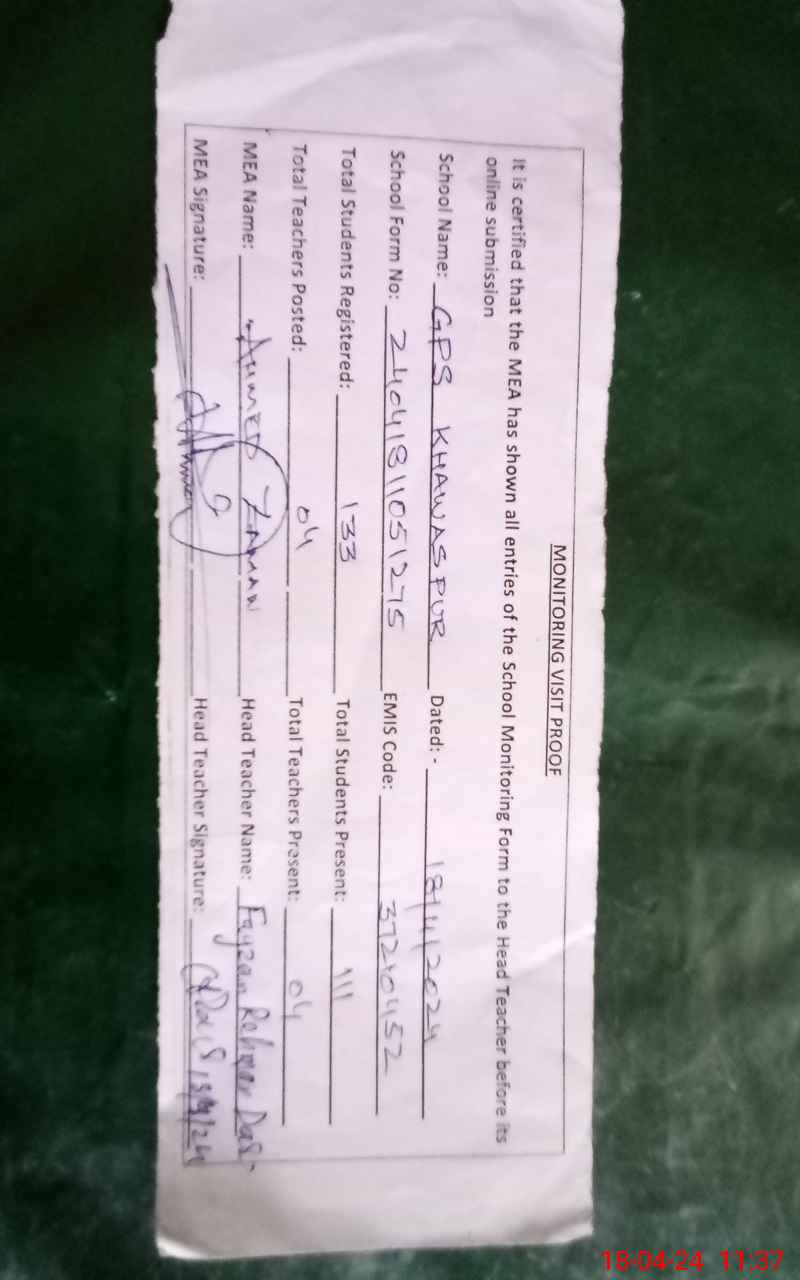 MONITORING VISIT PROOF
It is certified that the MEA has shown all entries of the School Monitoring Form to the Head Teacher before its
online submission
School Name: GPS KHAWASPUR Dated: - 18/4/2024
School Form No: 24041811051275 EMIS Code: 37210452
Total Students Registered: 133 Total Students Present: 111
Total Teachers Posted: 04 Total Teachers Present: 04
MEA Name: AHMED ZAMAN Head Teacher Name: Fayzan Rehman
MEA Signature: Head Teacher Signature:
18-04-24 11:37